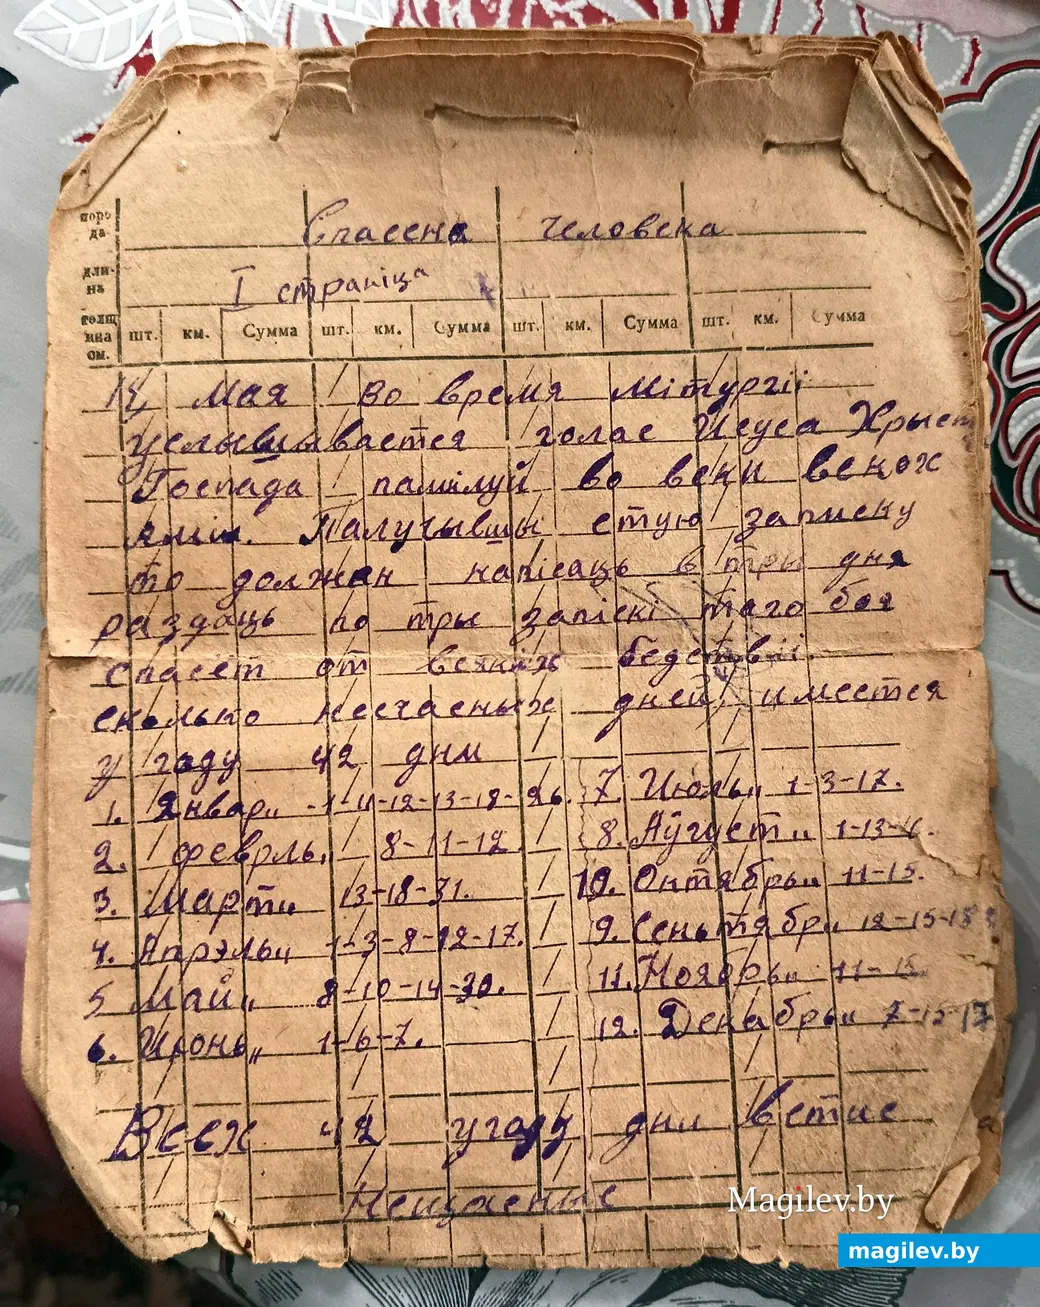 поро
да
Спасена человека
дли-
на
I страніца
толщ
ина
см.
шт. км. Сумма шт. км. Сумма шт. км. Сумма шт. км. Сумма
Мая во время мітургіі
услышывается голас Исуса Хрыст
Госпада памілуй во веки векох
амін. Палучывшы етую записку
то должан напісаць в тры дня
раздаць по тры запіскі таго бог
спасет от всяких бедствіі.
сколько несчасных дней имеется
у году 42 дни
1. Январ„ -1-11-12-13-18-26. 7. Июль„ 1-3-17.
2. февраль. 8-11-12. 8. Аўгуст„ 1-13-
3. Март„ 13-18-31. 10. Октябрь„ 11-15.
4. Апрэль„ 1-3-8-12-17. 9. Сеньтябр„ 12-15-18
5 Май„ 8-10-14-30. 11. Ноябрь„ 11-15
6. Июонь„ 1-6-7. 12. Декабрь„ 7-15-17
Всех 42 угоду дни
Нещасные
Magilev.by
magilev.by